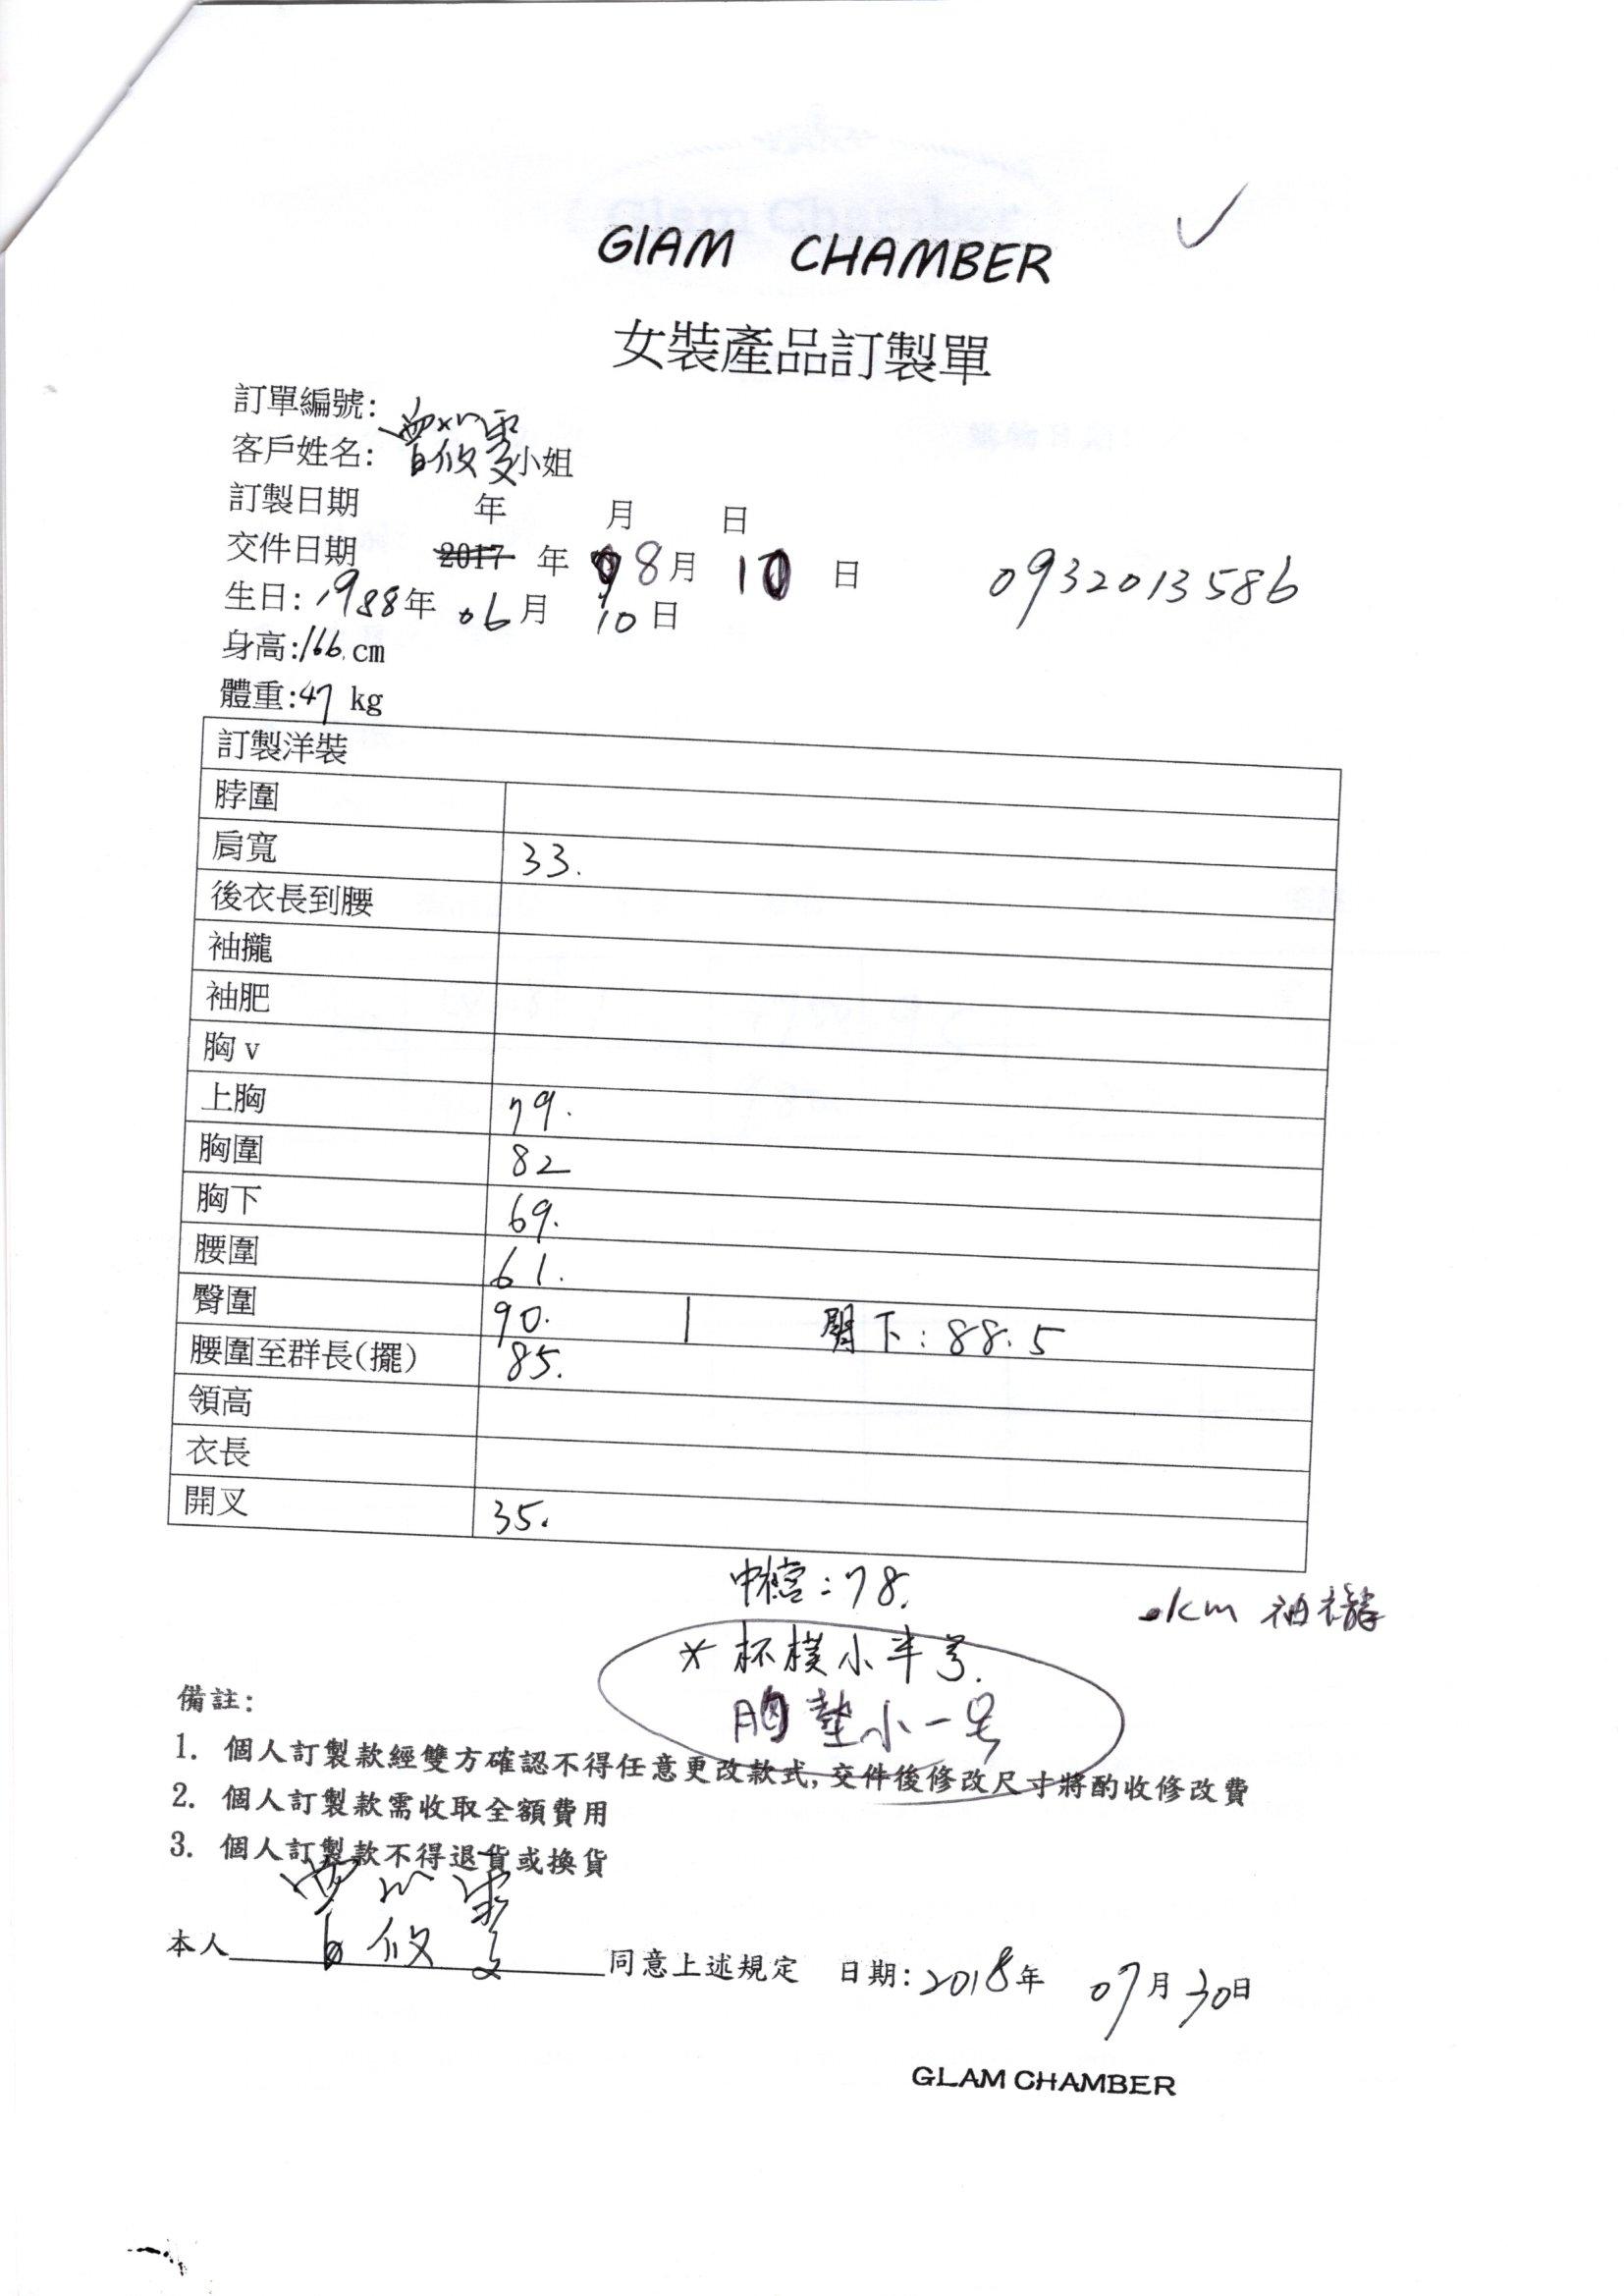 GlAM CHAMBER
女裝產品訂製單
訂單編號:
客戶姓名: 曾筱雯小姐
訂製日期 年 月 日
交件日期 2017 年 08月 10 日 0932013586
生日: 1988年 06月 10日
身高:166.cm
體重:47 kg
訂製洋裝
脖圍
肩寬 33.
後衣長到腰
袖攏
袖肥
胸 v
上胸 79.
胸圍 82
胸下 69.
腰圍 61.
臀圍 90. | 臀下:88.5
腰圍至群長(擺) 85.
領高
衣長
開叉 35.
中襠:78.
km 袖襱
*杯模小半号.
胸墊小一号
備註:
1. 個人訂製款經雙方確認不得任意更改款式,交件後修改尺寸將酌收修改費
2. 個人訂製款需收取全額費用
3. 個人訂製款不得退貨或換貨
本人 曾筱雯 同意上述規定 日期:2018年 07月30日
GLAM CHAMBER